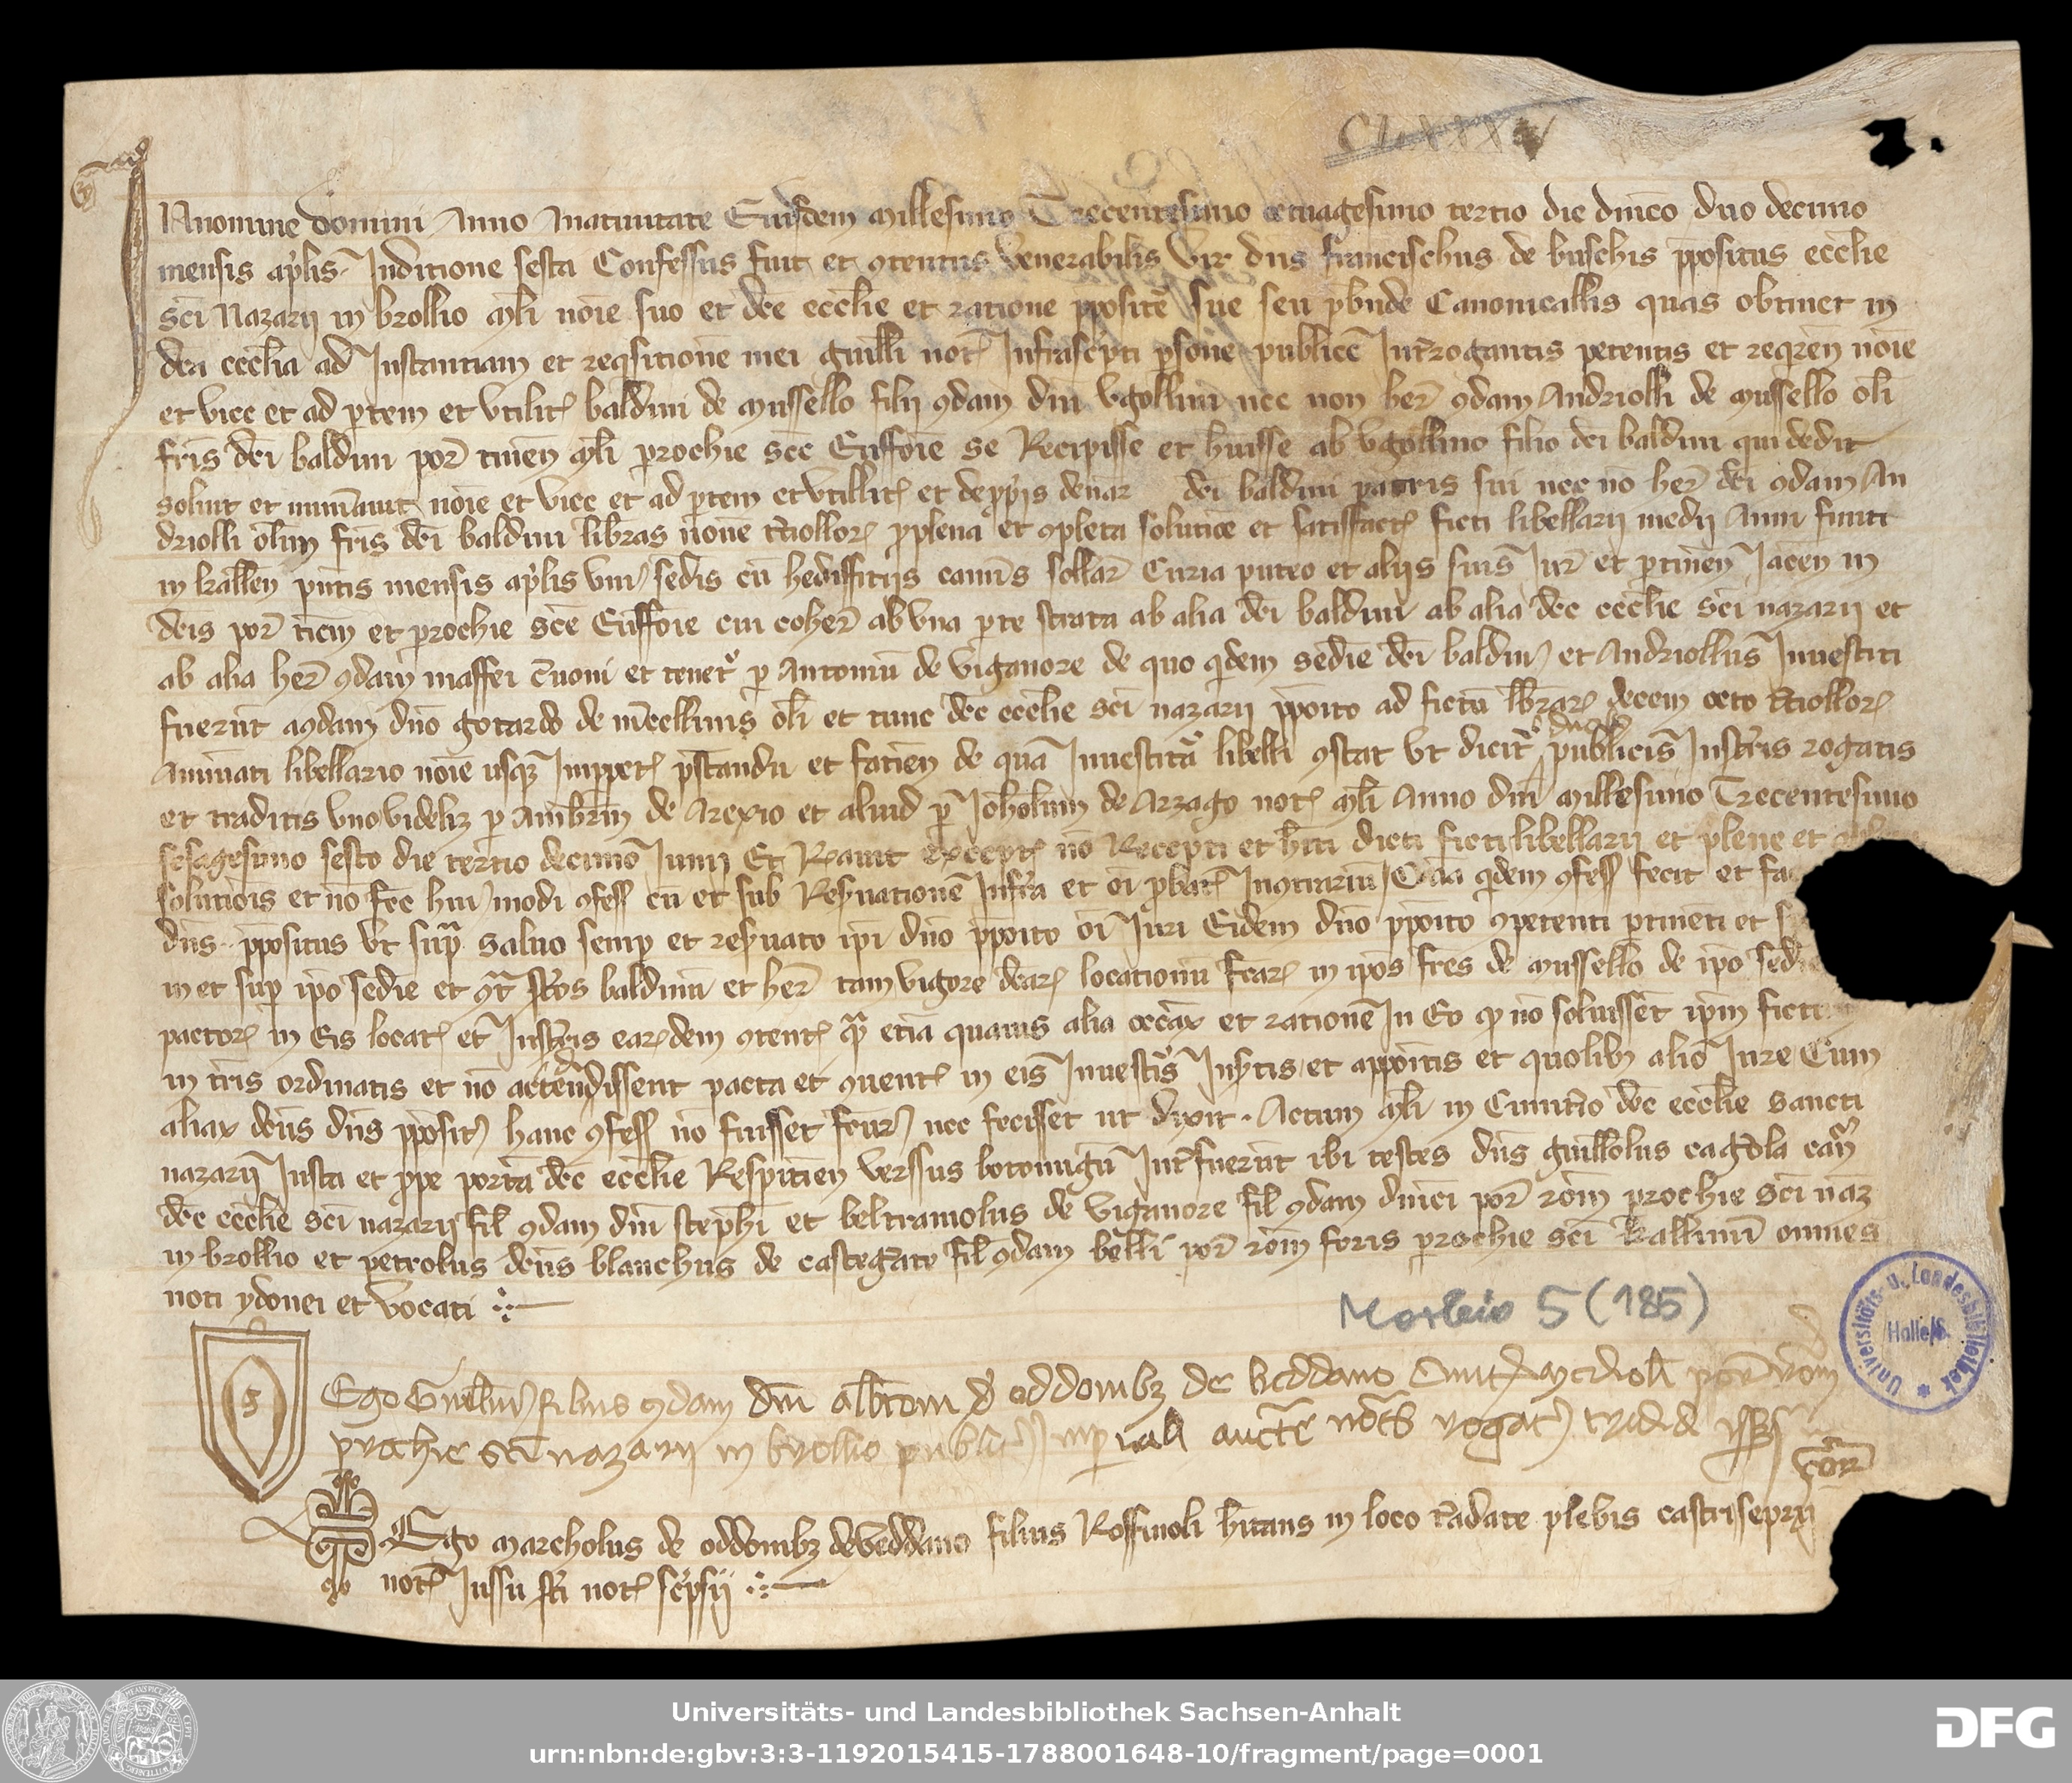 CLXXXV
IN nomine domini Anno Anativitate Eiusdem Millesimo Trecentesimo octuagesimo tertio die dnico duo decimo
mensis aplis Inditione sesta Confessus fuit et 9tentus Venerabilis Vir dns francischus de buschis ppositus ecclie
sci Nazarij in brollio Mli noie suo et dce ecclie et ratione pposite sue seu pbnde Canonicallis quas obtinet in
dca ecclia ad Instantiam et reqsitione mei guilli not Infrascpti psone publice Introgantis petentis et reqren noie
et vice et ad ptem et Utilit baldini de Mussello filij 9dam dni Ugollini nec non her 9dam Andriolli de Mussello oli
fris dci baldini por ticin Mli prochie sce Euffoie se Recipisse et huisse ab Ugollino filio dci baldini qui dedit
solvit et numavit noie et vice et ad ptem et Utillit et de pprijs denar dci baldini patris sui nec no her dci 9dam An
driolli olim fris dci baldini libras novem tciollor p plena et 9pleta solutioe et satisfact ficti libellarij medij Anni finiti
in kallen pntis mensis aplis Uni sedis cu hediffitijs camis sollar Curia puteo et alijs suis Iur et ptinen Iacen in
dcis por ticin et prochie sce Euffoie cui coher ab Una pte strata ab alia dci baldini ab alia dce ecclie sci nazarij et
ab alia her 9dam maffei et tenet p Antoniu de Viganore de quo qdem sedie dci baldin et Andriollus Investiti
fuerut a 9dam dno gotardo de oli et tunc dce ecclie sci nazarij ppoito ad fictu librar decem octo tciollor
Anuuati libellario noie usq Imppet pstandu et fatien de qua Investitura libelli 9stat Ut dicit duob publicis Instris rogatis
et traditis Uno videliz p Ambrm de Arexio et aliud p Ioholum de Arzago not Mli Anno dni Millesimo Trecentesimo
sesagesimo sesto die tertio decimo Iunij Et Rauit except no Recepti et hiti dicti ficti libellarij et plene et
solutiois et no fce hui modi 9fess cu et sub Resvatione Infra et oi pbat In9trariu Qua qdem 9fess fecit et fa
dns ppositus Ut supra salvo semp et resvato ipi dno ppoito oi Iuri Eidem dno ppoito 9petenti ptineti et
in et sup ipo sedie et 9tra sctos baldinu et her tam vigore dcar locationu fcar in ipos fres de Mussello de ipo sedie
pactor in Eis locat et Instris ear dem 9tent qua etia quavis alia occax et ratione In Eo qo no solvissent ipm fictu
in tris ordinatis et no actendissent pacta et 9vent in eis Investis Insertis et appoitis et quolibz alio Iure Cum
aliax dcus dns pposit hanc 9fess no fuisset nec fecisset ut dixit. Actum Mli in Cimitio dce ecclie sancti
nazarij Iusta et ppe porta dce ecclie Respitien Verssus botonugu Intfuerut ibi testes dns guillolus cagola can
dce ecclie sci nazarij fil 9dam dni stephi et beltramolus de Viganore fil 9dam dnici por rom prochie sci naz
in brollio et petrolus dcus blanchus de castegate fil 9dam belli por rom foris prochie sci kallimi omnes
noti ydonei et Vocati
Morbio 5 (185)
S
Ego filius 9dam dni de oddonibz de veddano
prochie sci nazarij in brollio public Imperiali aucte not rogat tradidi
Ego Marcholus de oddonibz de Veddano filius Roffinoli hitans in loco tadate plebis castri seprij
not Iussu scti not scpsij
Universitäts- u. Landesbibliothek
Halle/S.
Universitäts- und Landesbibliothek Sachsen-Anhalt
urn:nbn:de:gbv:3:3-1192015415-1788001648-10/fragment/page=0001
DFG